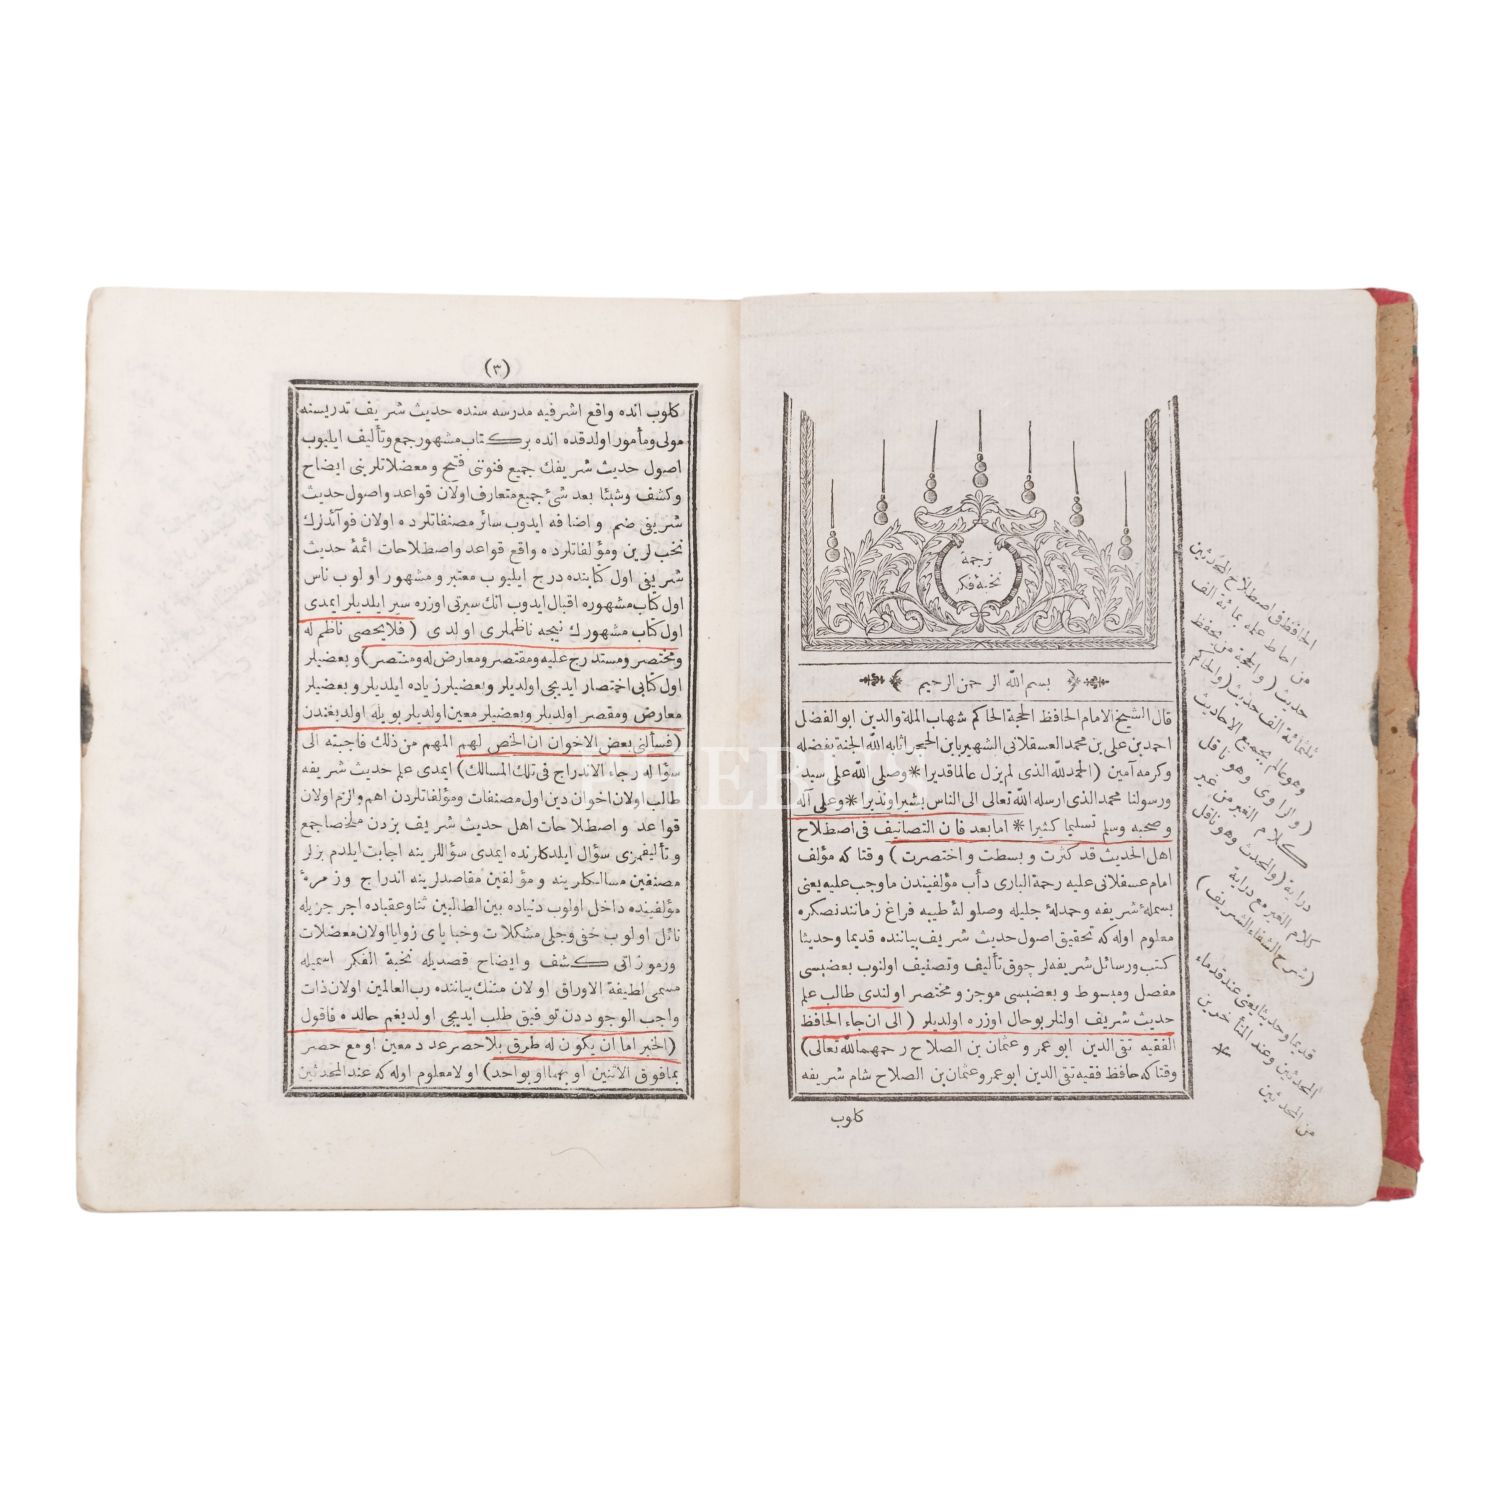 ترجمه
نخبة فكر
بسم الله الرحمن الرحيم
قال الشيخ الامام الحافظ الحجة الحاكم شهاب الملة والدين ابو الفضل
احمد بن علي بن محمد العسقلاني الشهير بابن الحجر اثابه الله الجنة بفضله
وكرمه آمين (الحمد لله الذى لم يزل عالما قديرا * وصلى الله على سيد
ورسولنا محمد الذى ارسله الله تعالى الى الناس بشيرا ونذيرا * وعلى آله
وصحبه وسلم تسليما كثيرا * اما بعد فان التصانيف فى اصطلاح
اهل الحديث قد كثرت وبسطت واختصرت) وقتا كه مؤلف
امام عسقلانى عليه رحمة البارى دأب مؤلفيندن ما وجب عليه يعنى
بسملۀ شريفه وحمدلۀ جليله وصلولۀ طيبه فراغ زمانند نصكره
معلوم اوله كه تحقيق اصول حديث شريف بياننده قديما وحديثا
كتب ورسائل شريفه لر چوق تأليف وتصنيف اولنوب بعضيسى
مفصل ومبسوط وبعضيسى موجز ومختصر اولندى طالب علم
حديث شريف اولنلر بو حال اوزره اولديلر (الى ان جاء الحافظ
الفقيه تقى الدين ابو عمر وعثمان بن الصلاح رحمهما الله تعالى)
وقتا كه حافظ فقيه تقى الدين ابو عمرو عثمان بن الصلاح شام شريفه
كلوب
الحافظ فى اصطلاح المحدثين
من احاط علمه بمائة الف
حديث (والحجة من يحفظ
ثلثمائة الف حديث (والحاكم
وهو عالم بجميع الاحاديث
(والراوى وهو ناقل
كلام الغير من غير
دراية (والمحدث وهو ناقل
كلام الغير مع دراية
(شرح الشفاء الشريف)
قديما وحديثا يعنى عند قدماء
المحدثين وعند المتأخرين
من المحدثين *
(٣)
كلوب انده واقع اشرفيه مدرسه سنده حديث شريف تدريسنه
مولى ومأمور اولدقده انده بر كتاب مشهور جمع وتأليف ايليوب
اصول حديث شريفك جميع فنوننى فتح ومعضلاتلرينى ايضاح
وكشف وشيئا بعد شئ جميع متعارف اولان قواعد واصول حديث
شريفى ضم واضافه ايدوب سائر مصنفاتلرده اولان فوآئدلرك
نخب لرين ومؤلفاتلرده واقع قواعد واصطلاحات ائمۀ حديث
شريفى اول كتابنده درج ايليوب معتبر ومشهور اولوب ناس
اول كتاب مشهوره اقبال ايدوب انك سيرتى اوزره سير ايلديلر ايمدى
اول كتاب مشهورك نيجه ناظملرى اولدى (فلا يحصى ناظم له
ومختصر ومستدرج عليه ومقتصر ومعارض له ومنتصر) وبعضيلر
اول كتابى اختصار ايديجى اولديلر وبعضيلر زياده ايلديلر وبعضيلر
معارض ومقصر اولديلر وبعضيلر معين اولديلر بويله اولديغندن
(فسألنى بعض الاخوان ان الخص لهم المهم من ذلك فاجبته الى
سؤاله رجاء الاندراج فى تلك المسالك) ايمدى علم حديث شريفه
طالب اولان اخوان دين اول مصنفات ومؤلفاتلردن اهم والزم اولان
قواعد واصطلاحات اهل حديث شريف بزدن ملخصا جمع
وتأليفمزى سؤال ايلدكلرنده ايمدى سؤاللرينه اجابت ايلدم بزلر
مصنفين مسالكلرينه ومؤلفين مقاصدلرينه اندراج وزمرۀ
مؤلفينده داخل اولوب دنياده بين الطالبين ثنا وعقباده اجر جزيله
نائل اولوب خفى وجلى مشكلات وخباياى زوايا اولان معضلات
ورموزاتى كشف وايضاح قصديله نخبة الفكر اسميله
مسمى لطيفة الاوراق اولان متنك بياننده رب العالمين اولان ذات
واجب الوجوددن توفيق طلب ايديجى اولديغم حالده فاقول
(الخبر اما ان يكون له طرق بلا حصر عدد معين او مع حصر
بما فوق الاثنين او بهما او بواحد) اولا معلوم اوله كه عند المحدثين